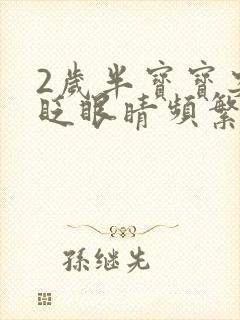 2歲半寶寶
眨眼睛頻繁
孫继先